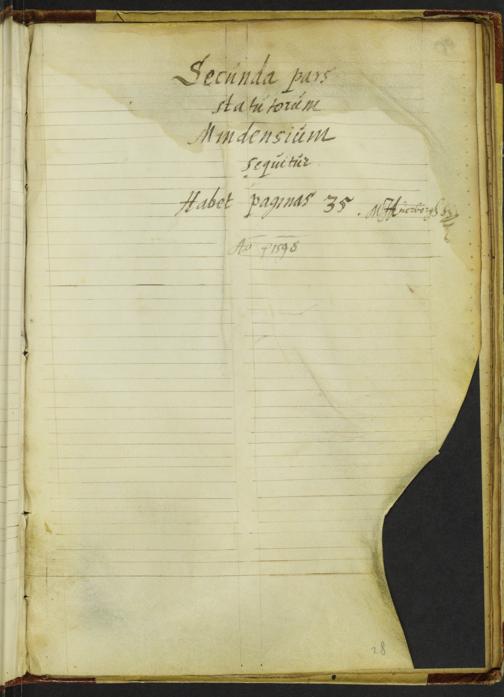 Secunda pars
statutorum
Mindensium
sequitur
Habet paginas 35.
Aō 1598
28